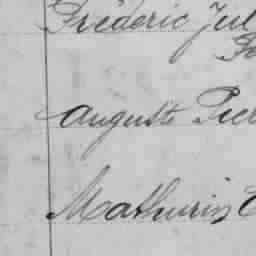 Frédéric Jul
Auguste Pier
Mathurin